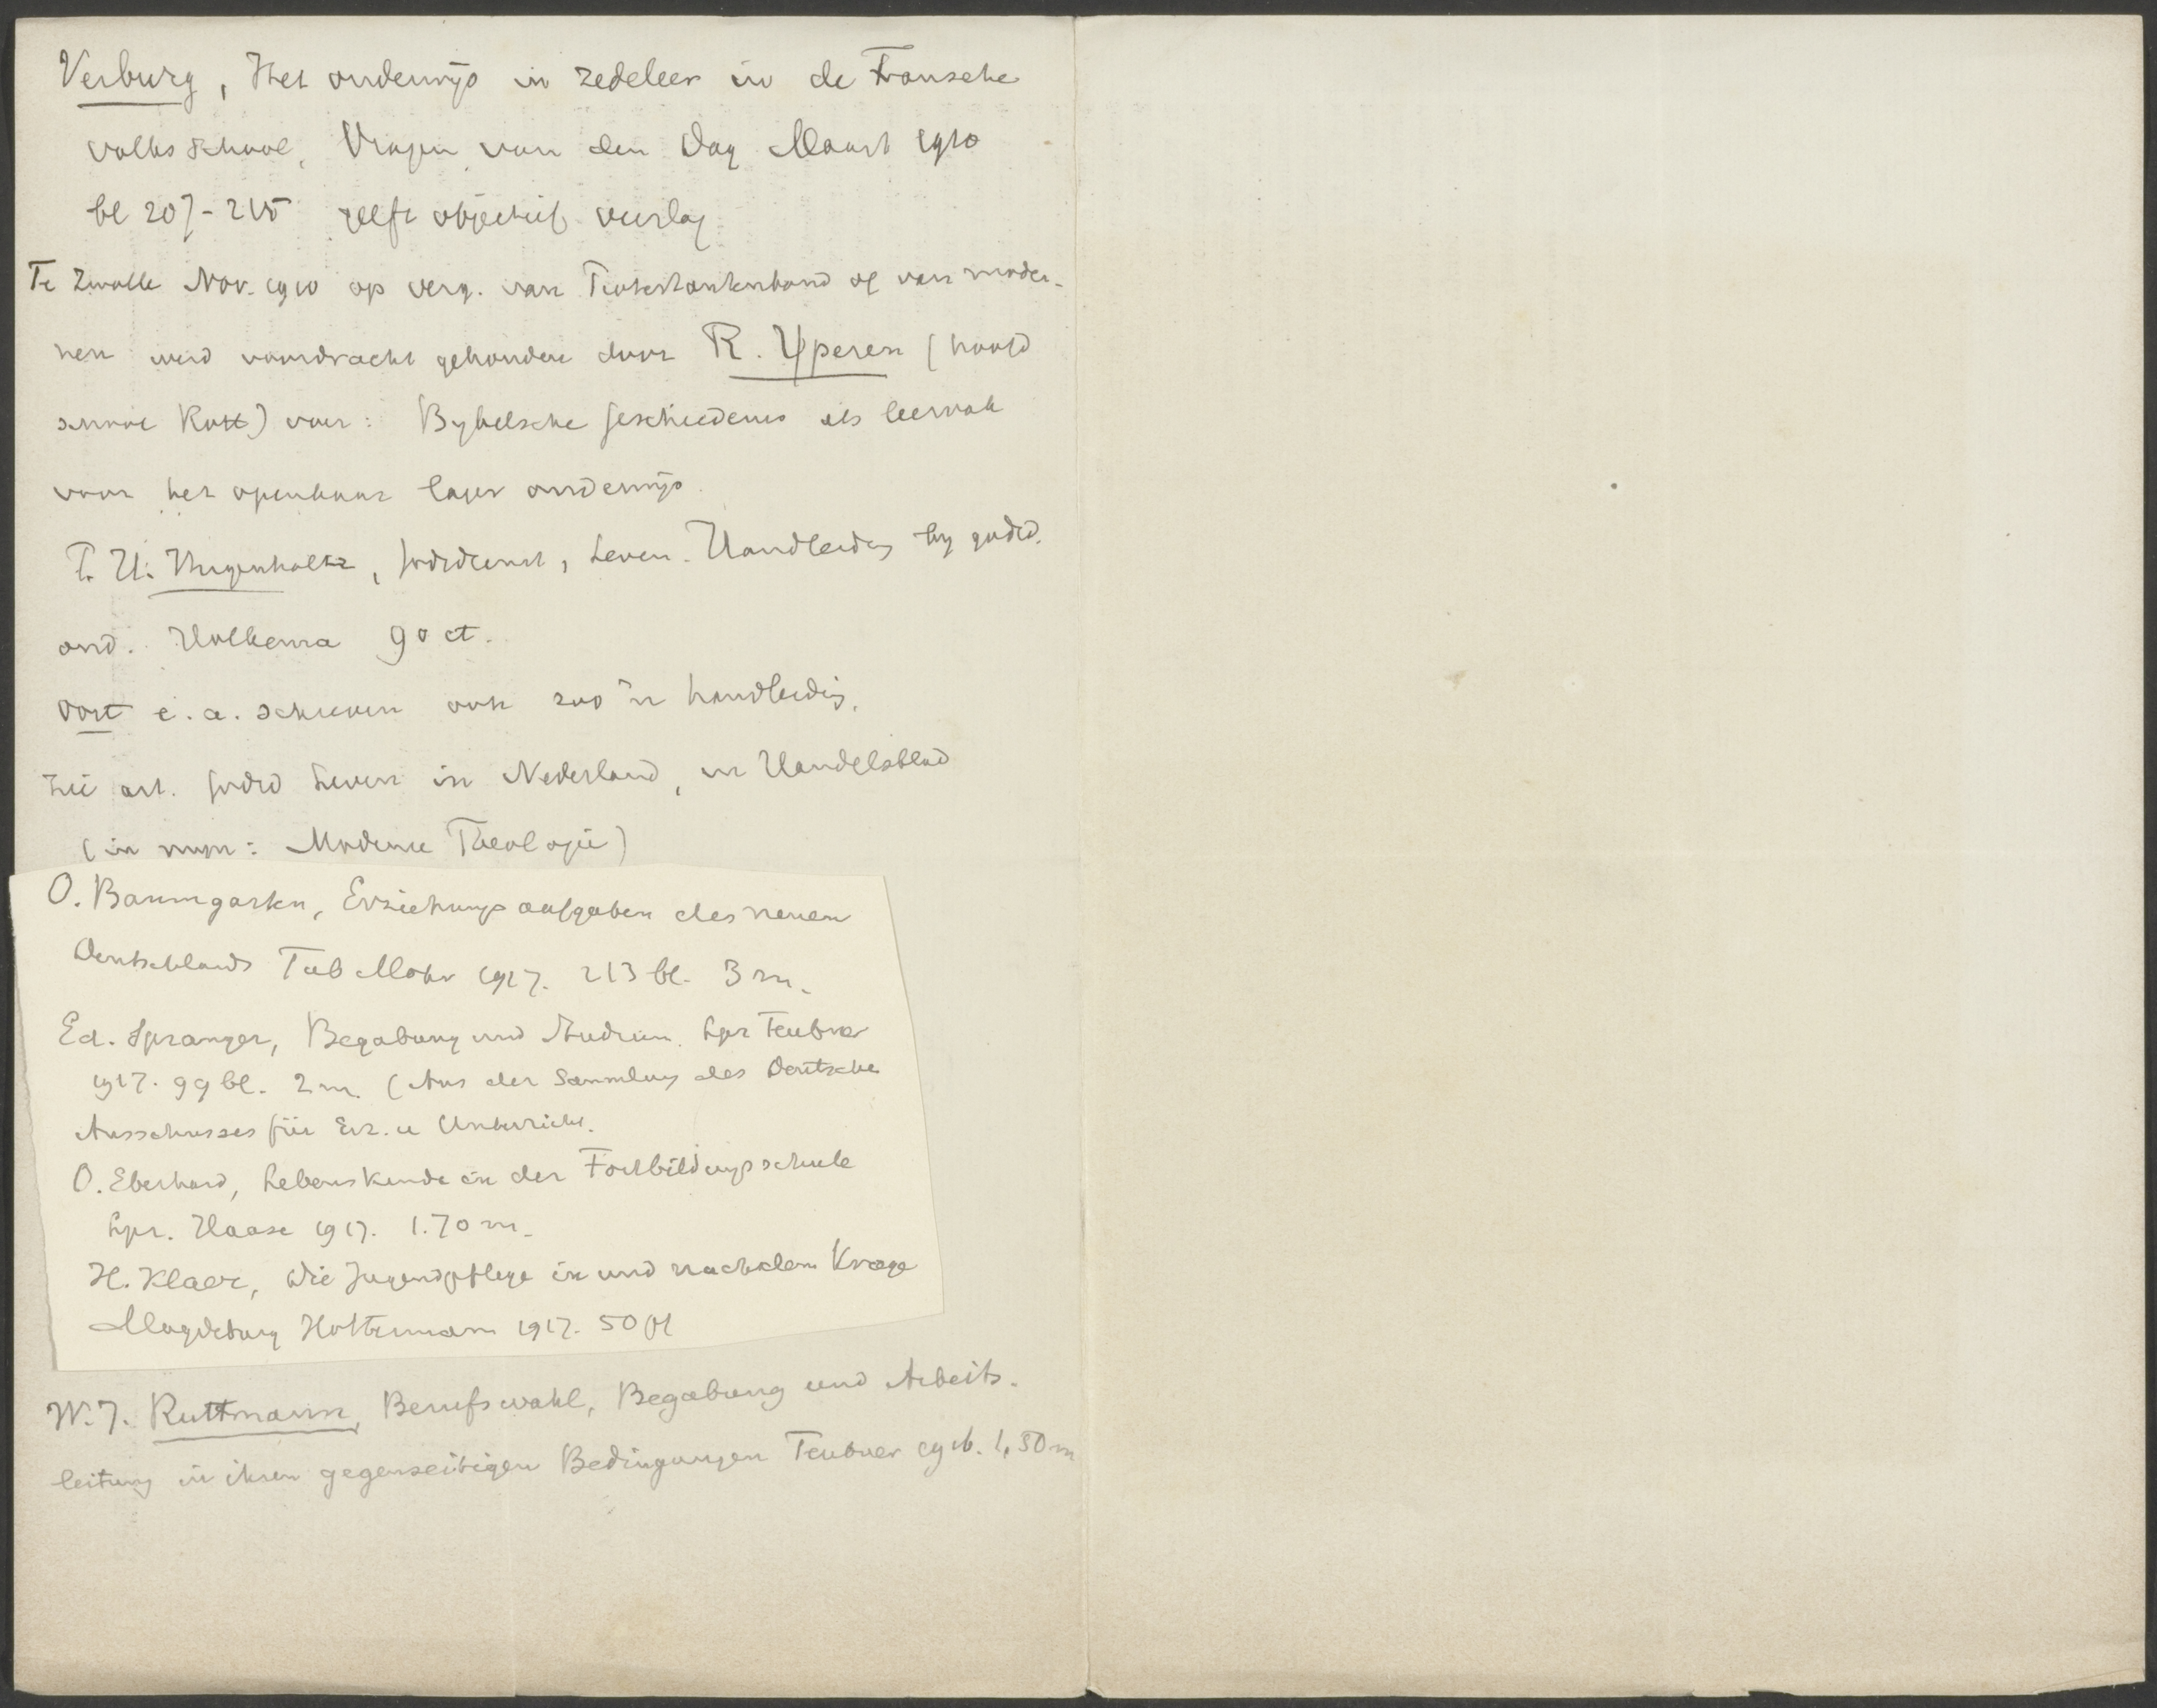 Verburg, Het onderwijs in zedeleer in de Fransche
volksschool, Vragen van den Dag Maart 1910
bl 207-215 geeft objectief verslag
Te Zwolle Nov. 1910 op verg. van Protestantenbond of van moder-
nen werd voordracht gehouden door R. Yperen (hoofd
school Rott) over: Bybelsche geschiedenis als leervak
voor het openbaar lager onderwijs.
P. H. Hugenholtz, Godsdienst, Leven. Handleidg by godsd.
ond. Holkema 90 ct.
Oort e.a. schreven ook zoo'n handleidg.
zie art. Godsd Leven in Nederland, in Handelsblad
(in mijn: Moderne Theologie)
O. Baumgarten, Erziehungsaufgaben des neuen
Deutschlands Tub Mohr 1917. 213 bl. 3 m.
Ed. Spranger, Begabung und Studium. Lpz Teubner
1917. 99 bl. 2 m. (Aus der Sammlung des Deutschen
Ausschusses für Erz. u Unterricht.
O. Eberhard, Lebenskunde in der Fortbildungsschule
Lpz. Haase 1917. 1.70 m.
H. Klaer, Die Jugendpflege in und nach dem Kriege
Magdeburg Holtermann 1917. 50 pf
W. J. Ruttmann, Berufswahl, Begabung und Arbeits-
leitung in ihren gegenseitigen Bedingungen Teubner 1916. 1,50 m